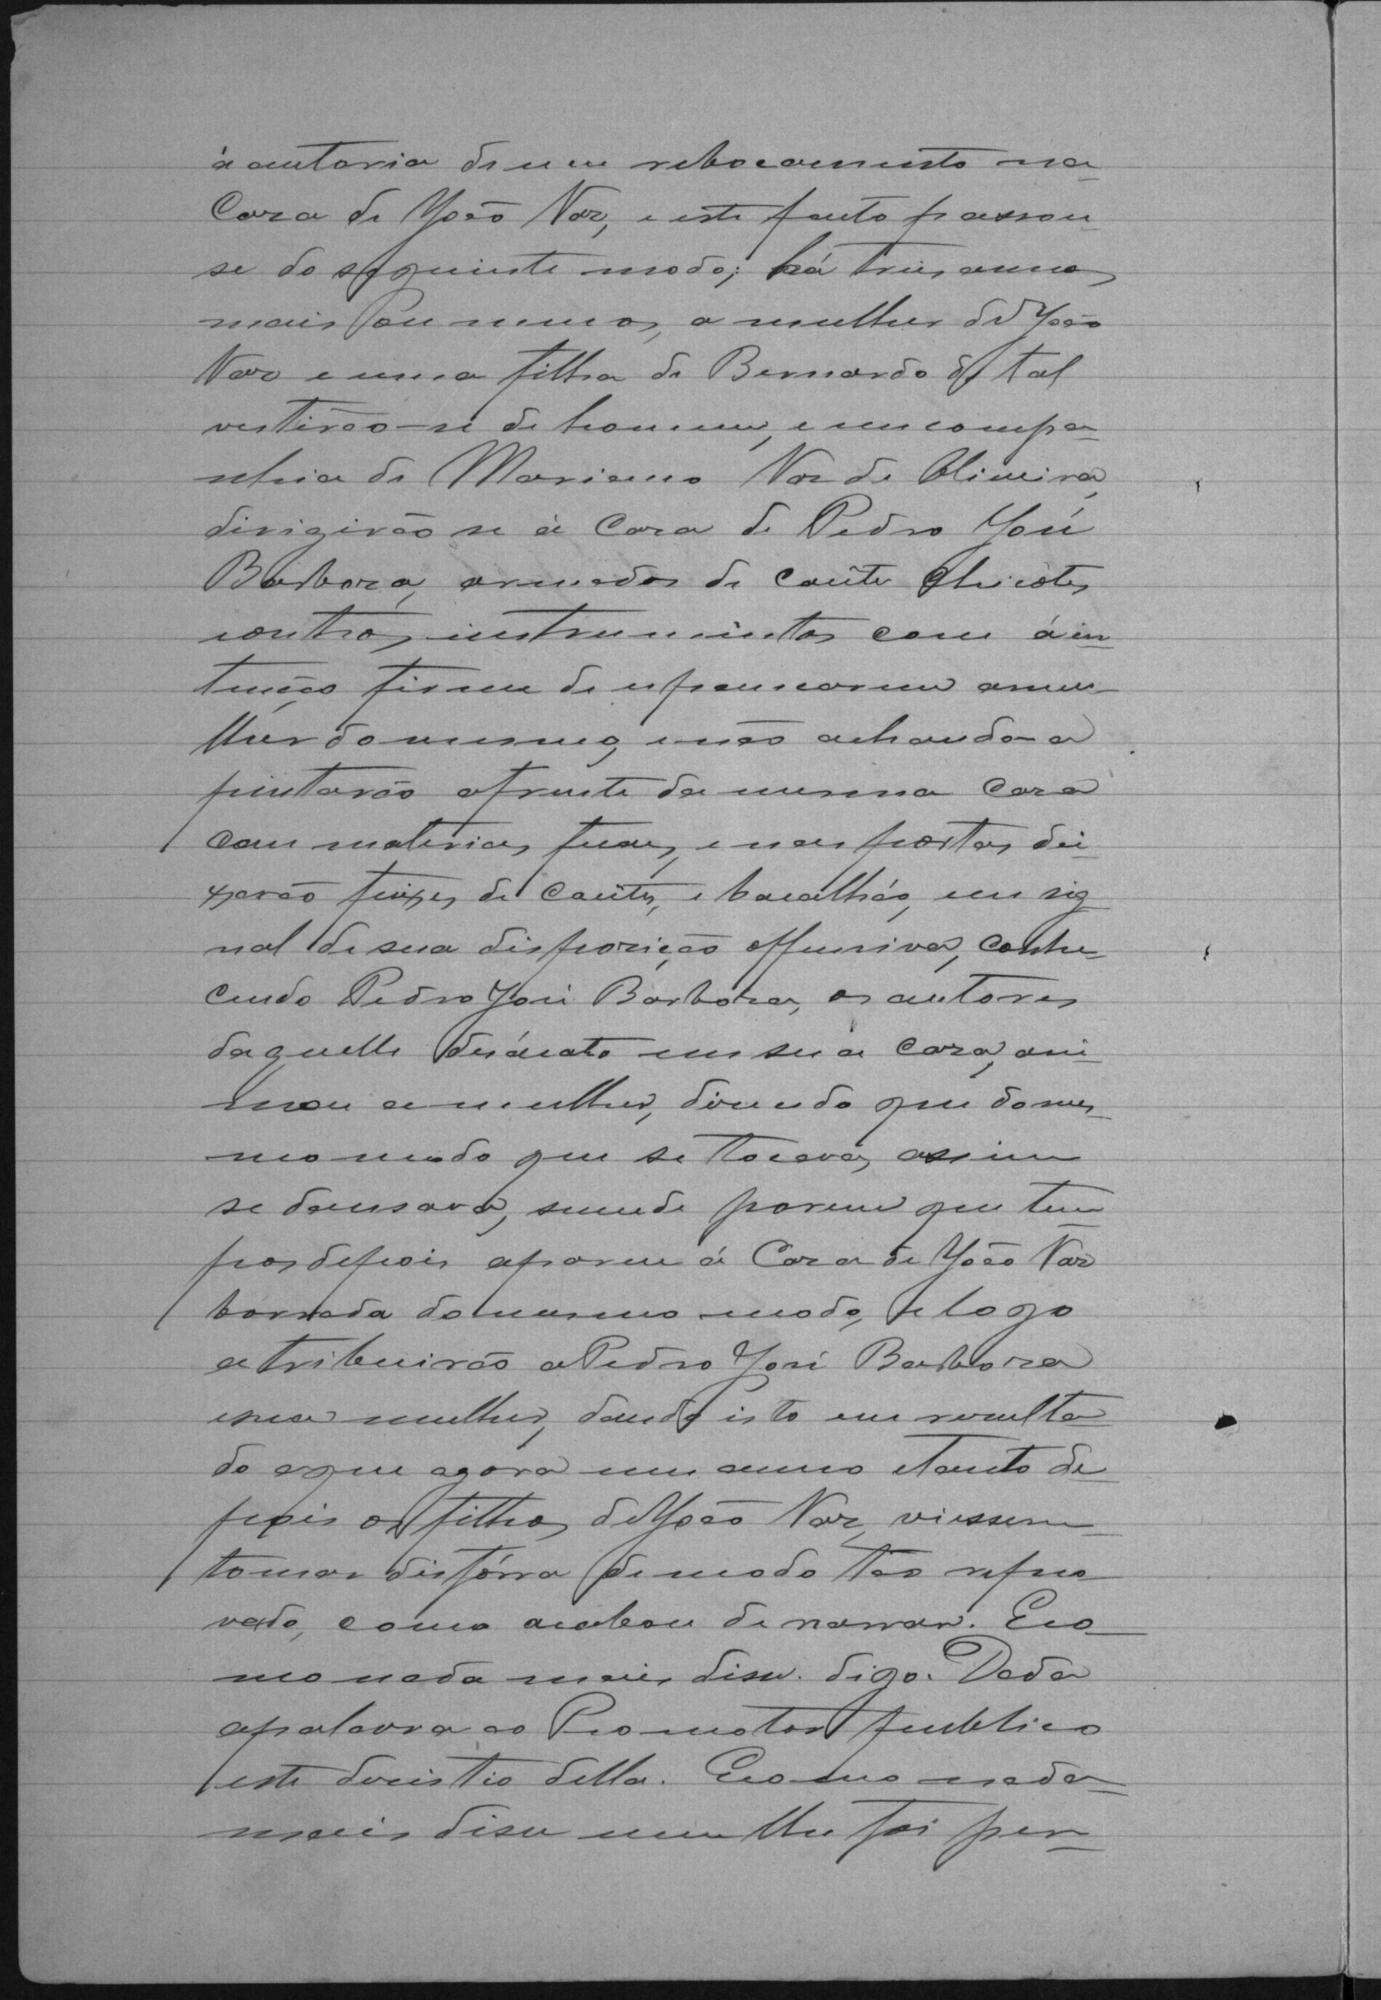 à autoria de um rebocamento na
Caza de João Vaz, e este fauto passou
se do seguinte modo; há tres annos
mais ou menos, a mulher de João
Vaz e uma filha de Bernardo de tal
vestirão-se de homem, e em compa-
nhia de Mariano Vaz de Oliveira,
dirigirão se á Caza de Pedro José
Barboza, armados de cacête chicotes
e outros instrumentos com á in-
tenção firme de espancarem a mu-
lher do mesmo, e não achando-a
pintarão a frente da mesma Caza
com materias fecaes, e nas portas dei-
xarão feixes de cacêtes, e bacalháo, em sig-
nal de sua disposição offensiva, conhe-
cendo Pedro José Barboza, os autores
daquelle desácato em sua caza, ani-
mou a mulher, dizendo que do mes-
mo modo que se tocava, assim
se dansava, sucede porem que tem-
pos depois aparece á Caza de João Vaz
borrada do mesmo modo, e logo
atribuirão a Pedro José Barboza
e sua mulher, dando isto em resulta-
do a que agora um anno e tanto de-
pois os filhos de João Vaz, viessem
tomar disfórra de modo tão repro
vado, como acabou de narrar. E co-
mo nada mais disse. digo. Dada
a palavra ao Promotor publico
este desistio della. E como nada
mais disse nem lhe foi per-